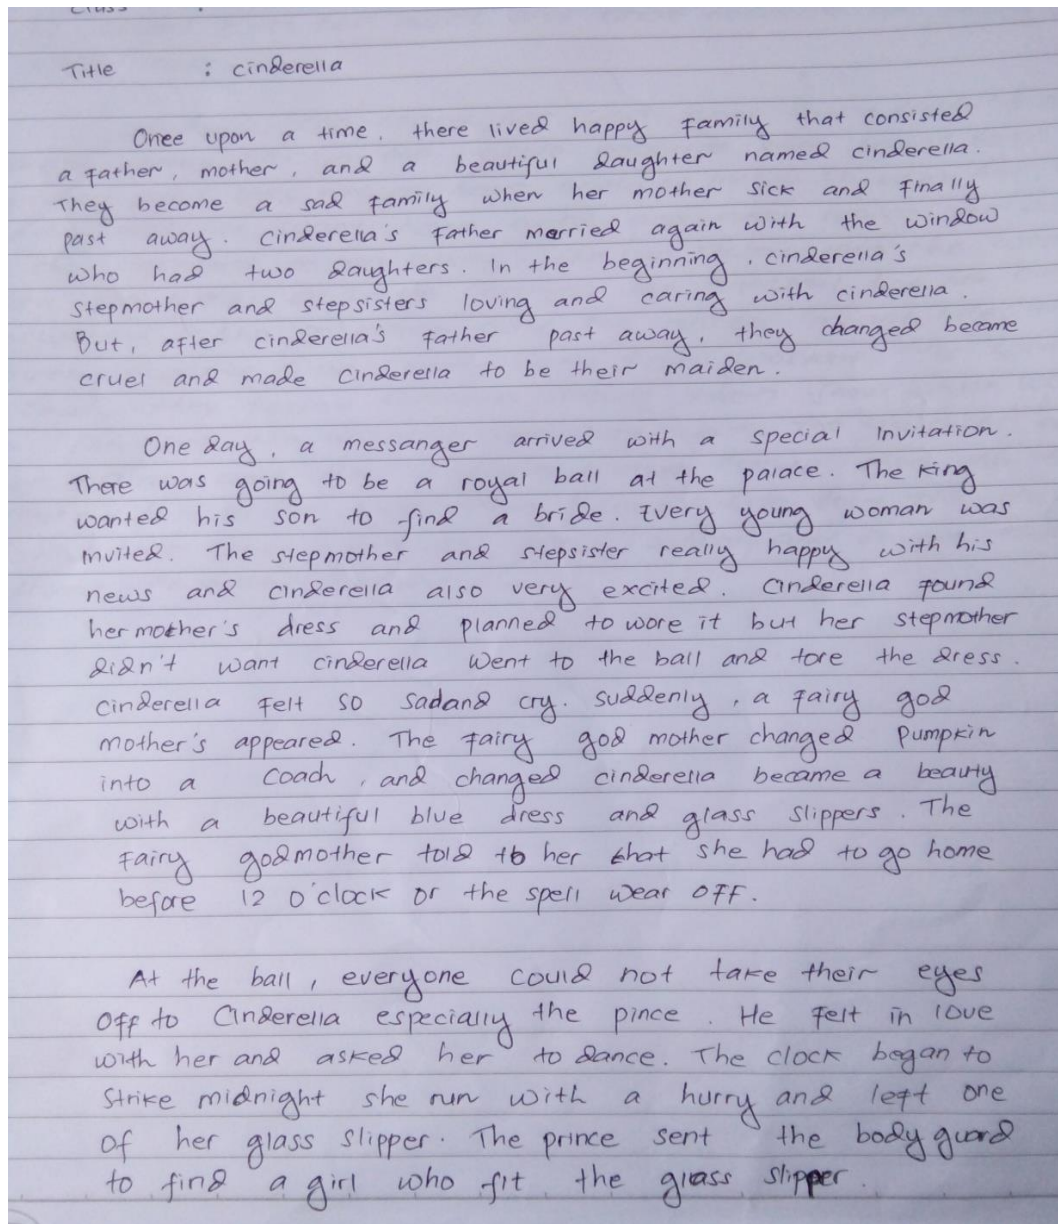 Class :
Title : Cinderella
Once upon a time, there lived happy family that consisted
a father, mother, and a beautiful daughter named cinderella.
They become a sad family when her mother sick and finally
past away. Cinderella's father married again with the window
who had two daughters. In the beginning, cinderella's
stepmother and stepsisters loving and caring with cinderella.
But, after cinderella's father past away, they changed became
cruel and made cinderella to be their maiden.
One day, a messanger arrived with a special invitation.
There was going to be a royal ball at the palace. The king
wanted his son to find a bride. Every young woman was
invited. The stepmother and stepsister really happy with his
news and cinderella also very excited. Cinderella found
her mother's dress and planned to wore it but her stepmother
didn't want cinderella went to the ball and tore the dress.
Cinderella felt so sadand cry. suddenly, a fairy god
mother's appeared. The fairy god mother changed pumpkin
into a coach, and changed cinderella became a beauty
with a beautiful blue dress and glass slippers. The
fairy godmother told to her that she had to go home
before 12 o'clock or the spell wear off.
At the ball, everyone could not take their eyes
off to Cinderella especially the pince. He felt in love
with her and asked her to dance. The clock began to
strike midnight she run with a hurry and left one
of her glass slipper. The prince sent the body guard
to find a girl who fit the glass slipper.